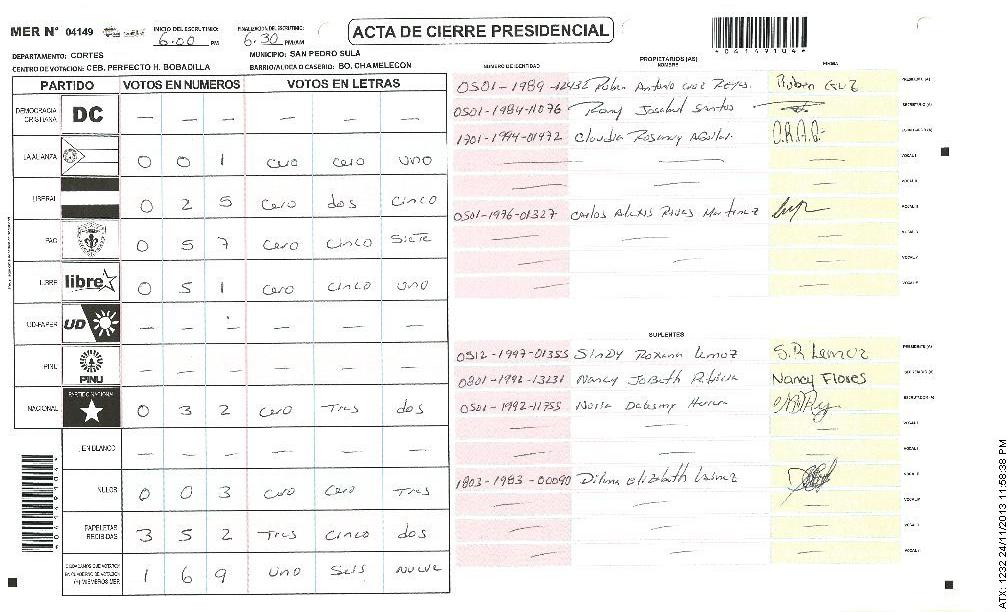 MER Nº 04149 INICIO DEL ESCRUTINIO: 6:00 PM FINALIZACION DEL ESCRUTINIO: 6:30 PM/AM ACTA DE CIERRE PRESIDENCIAL 04149104
DEPARTAMENTO: CORTES MUNICIPIO: SAN PEDRO SULA
CENTRO DE VOTACION: CEB. PERFECTO H. BOBADILLA BARRIO/ALDEA O CASERIO: BO. CHAMELECON
PARTIDO VOTOS EN NUMEROS VOTOS EN LETRAS
DEMOCRACIA CRISTIANA DC — — — — — —
LA ALIANZA 0 0 1 cero cero uno
LIBERAL 0 2 5 cero dos cinco
PAC 0 5 7 cero cinco siete
LIBRE libre 0 5 1 cero cinco uno
UD-FAPER UD — — — — — —
PINU PINU — — — — — —
NACIONAL PARTIDO NACIONAL 0 3 2 cero tres dos
EN BLANCO — — — — — —
NULOS 0 0 3 cero cero tres
PAPELETAS RECIBIDAS 3 5 2 tres cinco dos
CIUDADANOS QUE VOTARON EN CUADERNO DE VOTACION (+) MIEMBROS MER 1 6 9 uno seis nueve
PROPIETARIOS (AS)
NUMERO DE IDENTIDAD NOMBRE FIRMA
0501-1989-12432 Ruben Antonio Cruz Reyes. Ruben Cruz PRESIDENTE (A)
0501-1984-11076 Rony Josabul Santos SECRETARIO (A)
1701-1994-01972 Claudia Rosanny Aguilar. C.R.A.G. ESCRUTADOR (A)
— — — VOCAL I
— — — VOCAL II
0501-1976-01327 Carlos Alexis Rivas Martinez VOCAL III
— — — VOCAL IV
— — — VOCAL V
— — — VOCAL VI
SUPLENTES
0512-1997-01355 Sindy Roxana Lemoz S.R Lemoz PRESIDENTE (A)
0801-1992-13231 Nancy Flores SECRETARIO (A)
0501-1992-11755 ESCRUTADOR (A)
— — — VOCAL I
— — — VOCAL II
1803-1983-00090 Elizabeth VOCAL III
— — — VOCAL IV
— — — VOCAL V
— — — VOCAL VI
ATX: 1232 24/11/2013 11:58:38 PM